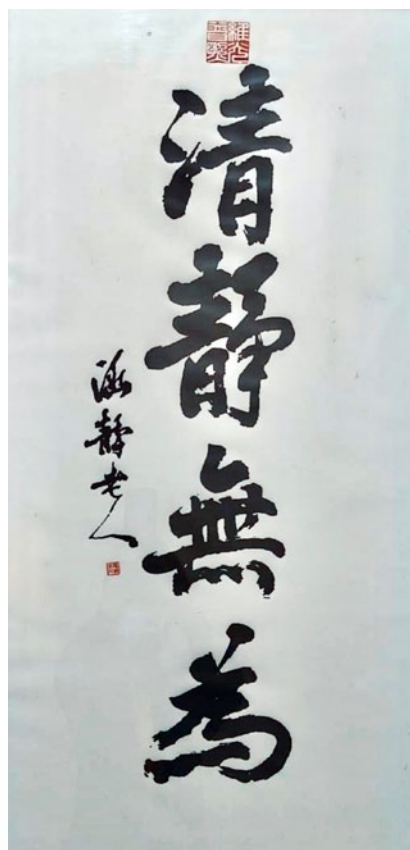 清靜無為
涵靜老人